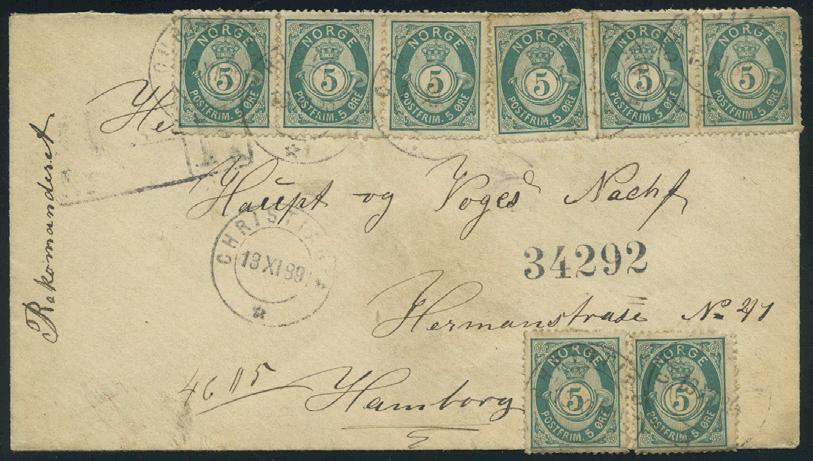 NORGE 5 POSTFRIM. 5 ØRE
NORGE 5 POSTFRIM. 5 ØRE
NORGE 5 POSTFRIM. 5 ØRE
NORGE 5 POSTFRIM. 5 ØRE
NORGE 5 POSTFRIM. 5 ØRE
NORGE 5 POSTFRIM. 5 ØRE
Rekomanderet
Haupt og Voges Nachf
CHRISTIANIA
13 XI 89
34292
Hermanstrasse No 41
4605
Hamborg
NORGE 5 POSTFRIM. 5 ØRE
NORGE 5 POSTFRIM. 5 ØRE